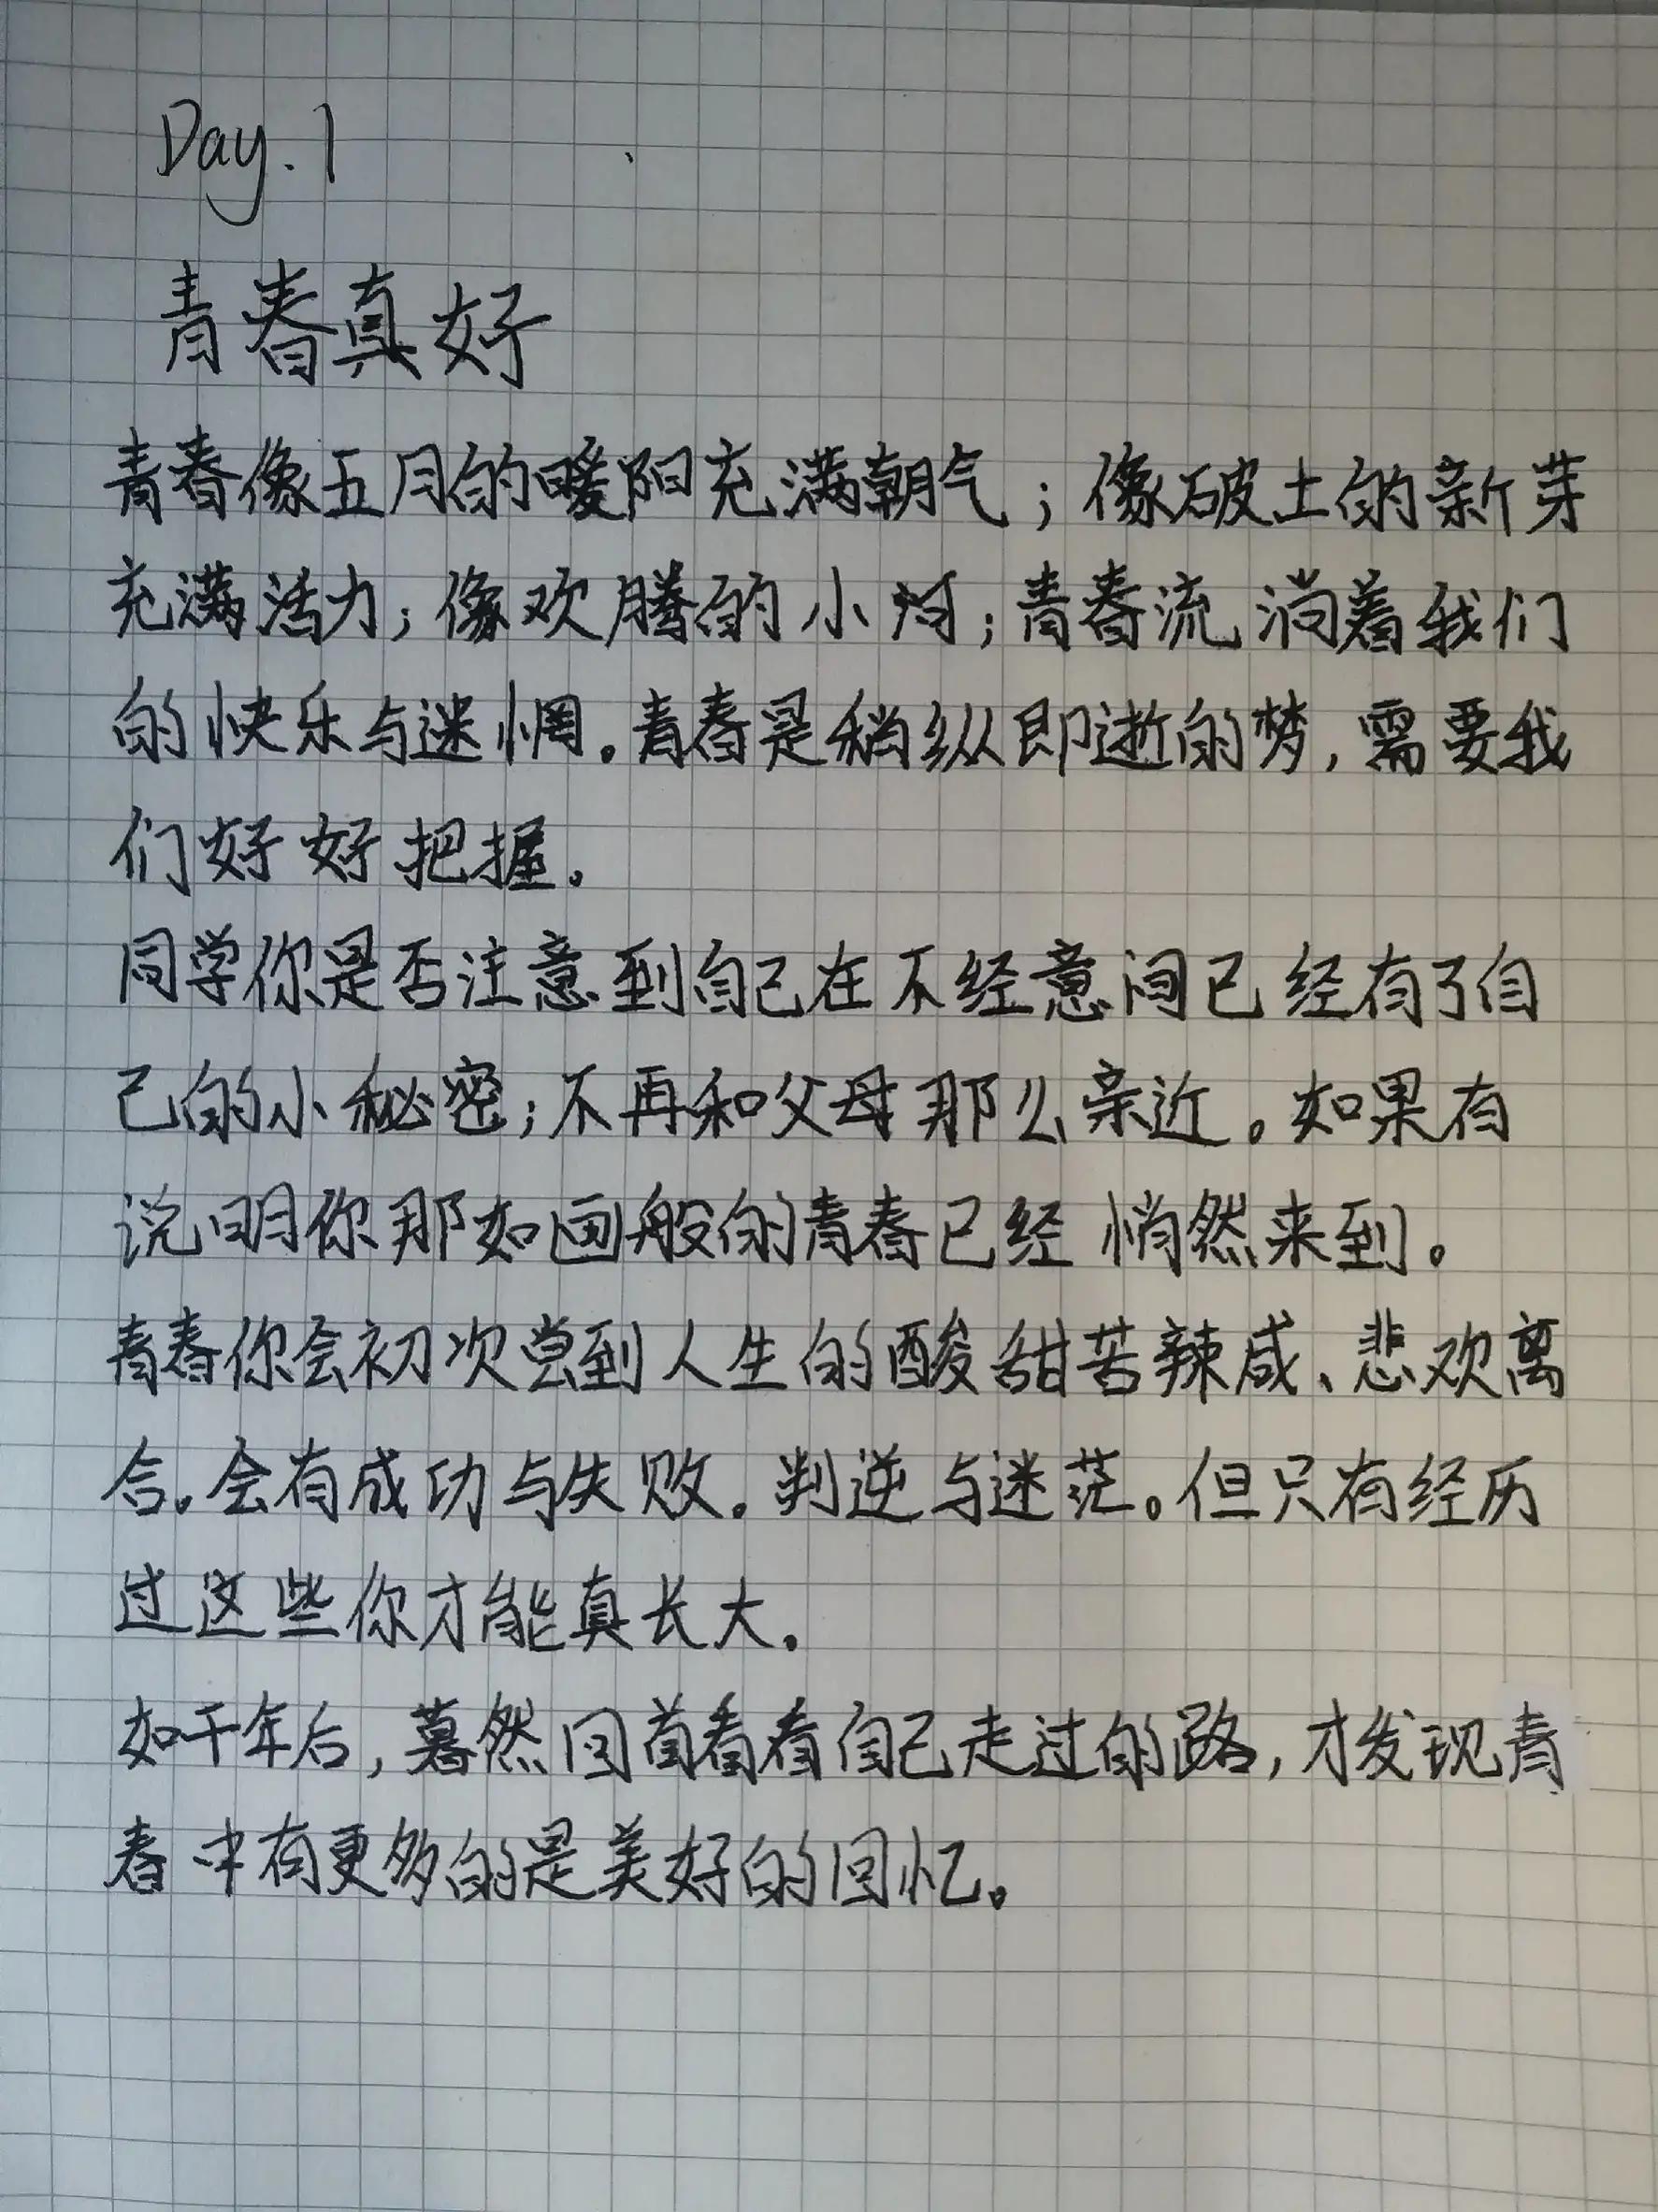 Day.1
青春真好
青春像五月的暖阳充满朝气；像破土的新芽
充满活力；像欢腾的小河；青春流淌着我们
的快乐与迷惘。青春是稍纵即逝的梦，需要我
们好好把握。
同学你是否注意到自己在不经意间已经有了自
己的小秘密；不再和父母那么亲近。如果有
说明你那如画般的青春已经悄然来到。
青春你会初次尝到人生的酸甜苦辣咸、悲欢离
合。会有成功与失败。判逆与迷茫。但只有经历
过这些你才能真长大。
如干年后，蓦然回首看看自己走过的路，才发现青
春中有更多的是美好的回忆。